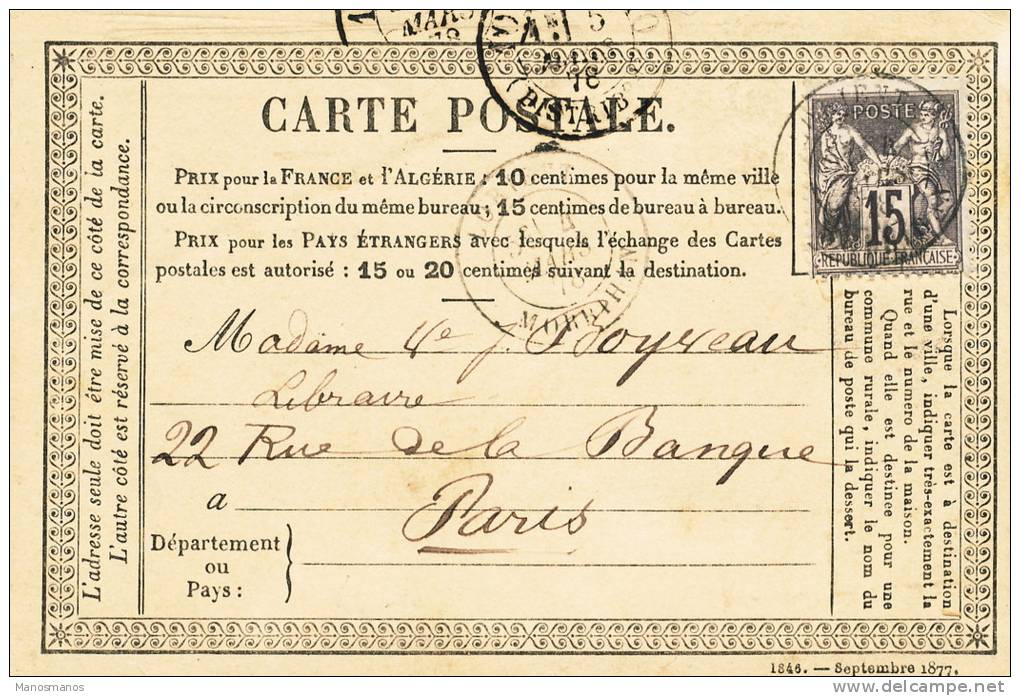 MARS
78
5
78
DISTRIB
CARTE POSTALE.
PRIX pour la FRANCE et l'ALGÉRIE : 10 centimes pour la même ville
ou la circonscription du même bureau ; 15 centimes de bureau à bureau.
PRIX pour les PAYS ÉTRANGERS avec lesquels l'échange des Cartes
postales est autorisé : 15 ou 20 centimes suivant la destination.
POSTE
15
REPUBLIQUE FRANÇAISE
4
MARS
78
MORBIHAN
Madame Ve J Boyveau
Libraire
22 Rue de la Banque
a Paris
Département
ou
Pays :
L'adresse seule doit être mise de ce côté de la carte.
L'autre côté est réservé à la correspondance.
Lorsque la carte est à destination
d'une ville, indiquer très-exactement la
rue et le numero de la maison.
Quand elle est destinée pour une
commune rurale, indiquer le nom du
bureau de poste qui la dessert.
1346. — Septembre 1877.
Manosmanos
delcampe.net